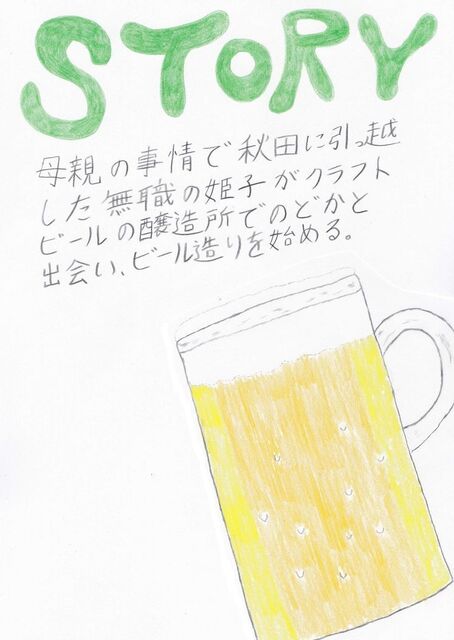 STORY
母親の事情で秋田に引っ越
した無職の姫子がクラフト
ビールの醸造所でのどかと
出会い、ビール造りを始める。